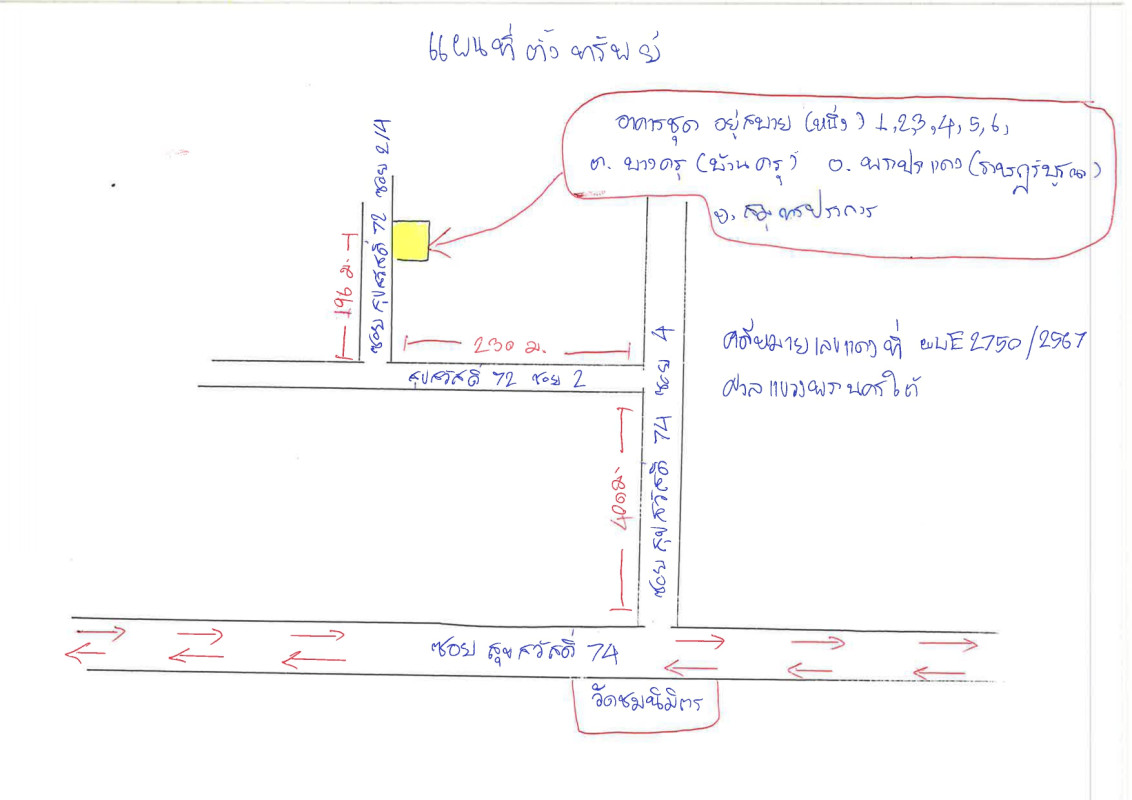 แผนที่ตั้งทรัพย์
อาคารชุด อยู่สบาย (หนึ่ง) 1,2,3,4,5,6,
ต. บางครุ (บ้านครุ) อ. พระประแดง (ราษฎร์บูรณะ)
จ. สมุทรปราการ
ซอย สุขสวัสดิ์ 72 ซอย 2/4
196 ม.
230 ม.
สุขสวัสดิ์ 72 ซอย 2
ซอย สุขสวัสดิ์ 74 ซอย 4
400 ม.
คดีหมายเลขแดงที่ ผบE2750/2567
ศาลแขวงพระนครใต้
ซอย สุขสวัสดิ์ 74
วัดชมนิมิตร